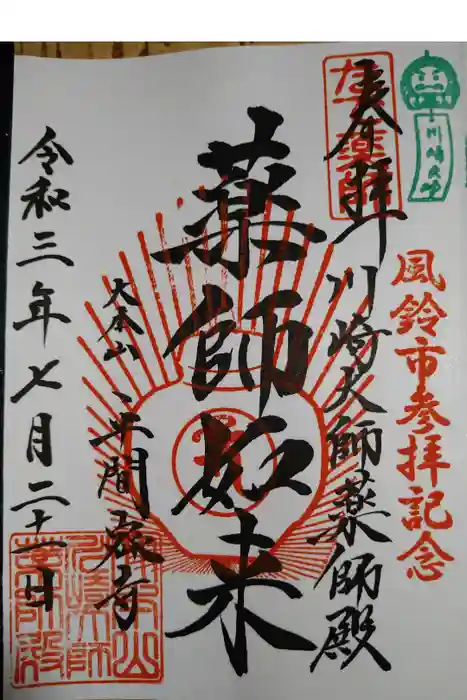 川崎大師
風鈴市参拝記念
奉拝
川崎大師薬師殿
薬師如来
大本山
平間寺
令和三年七月二十一日